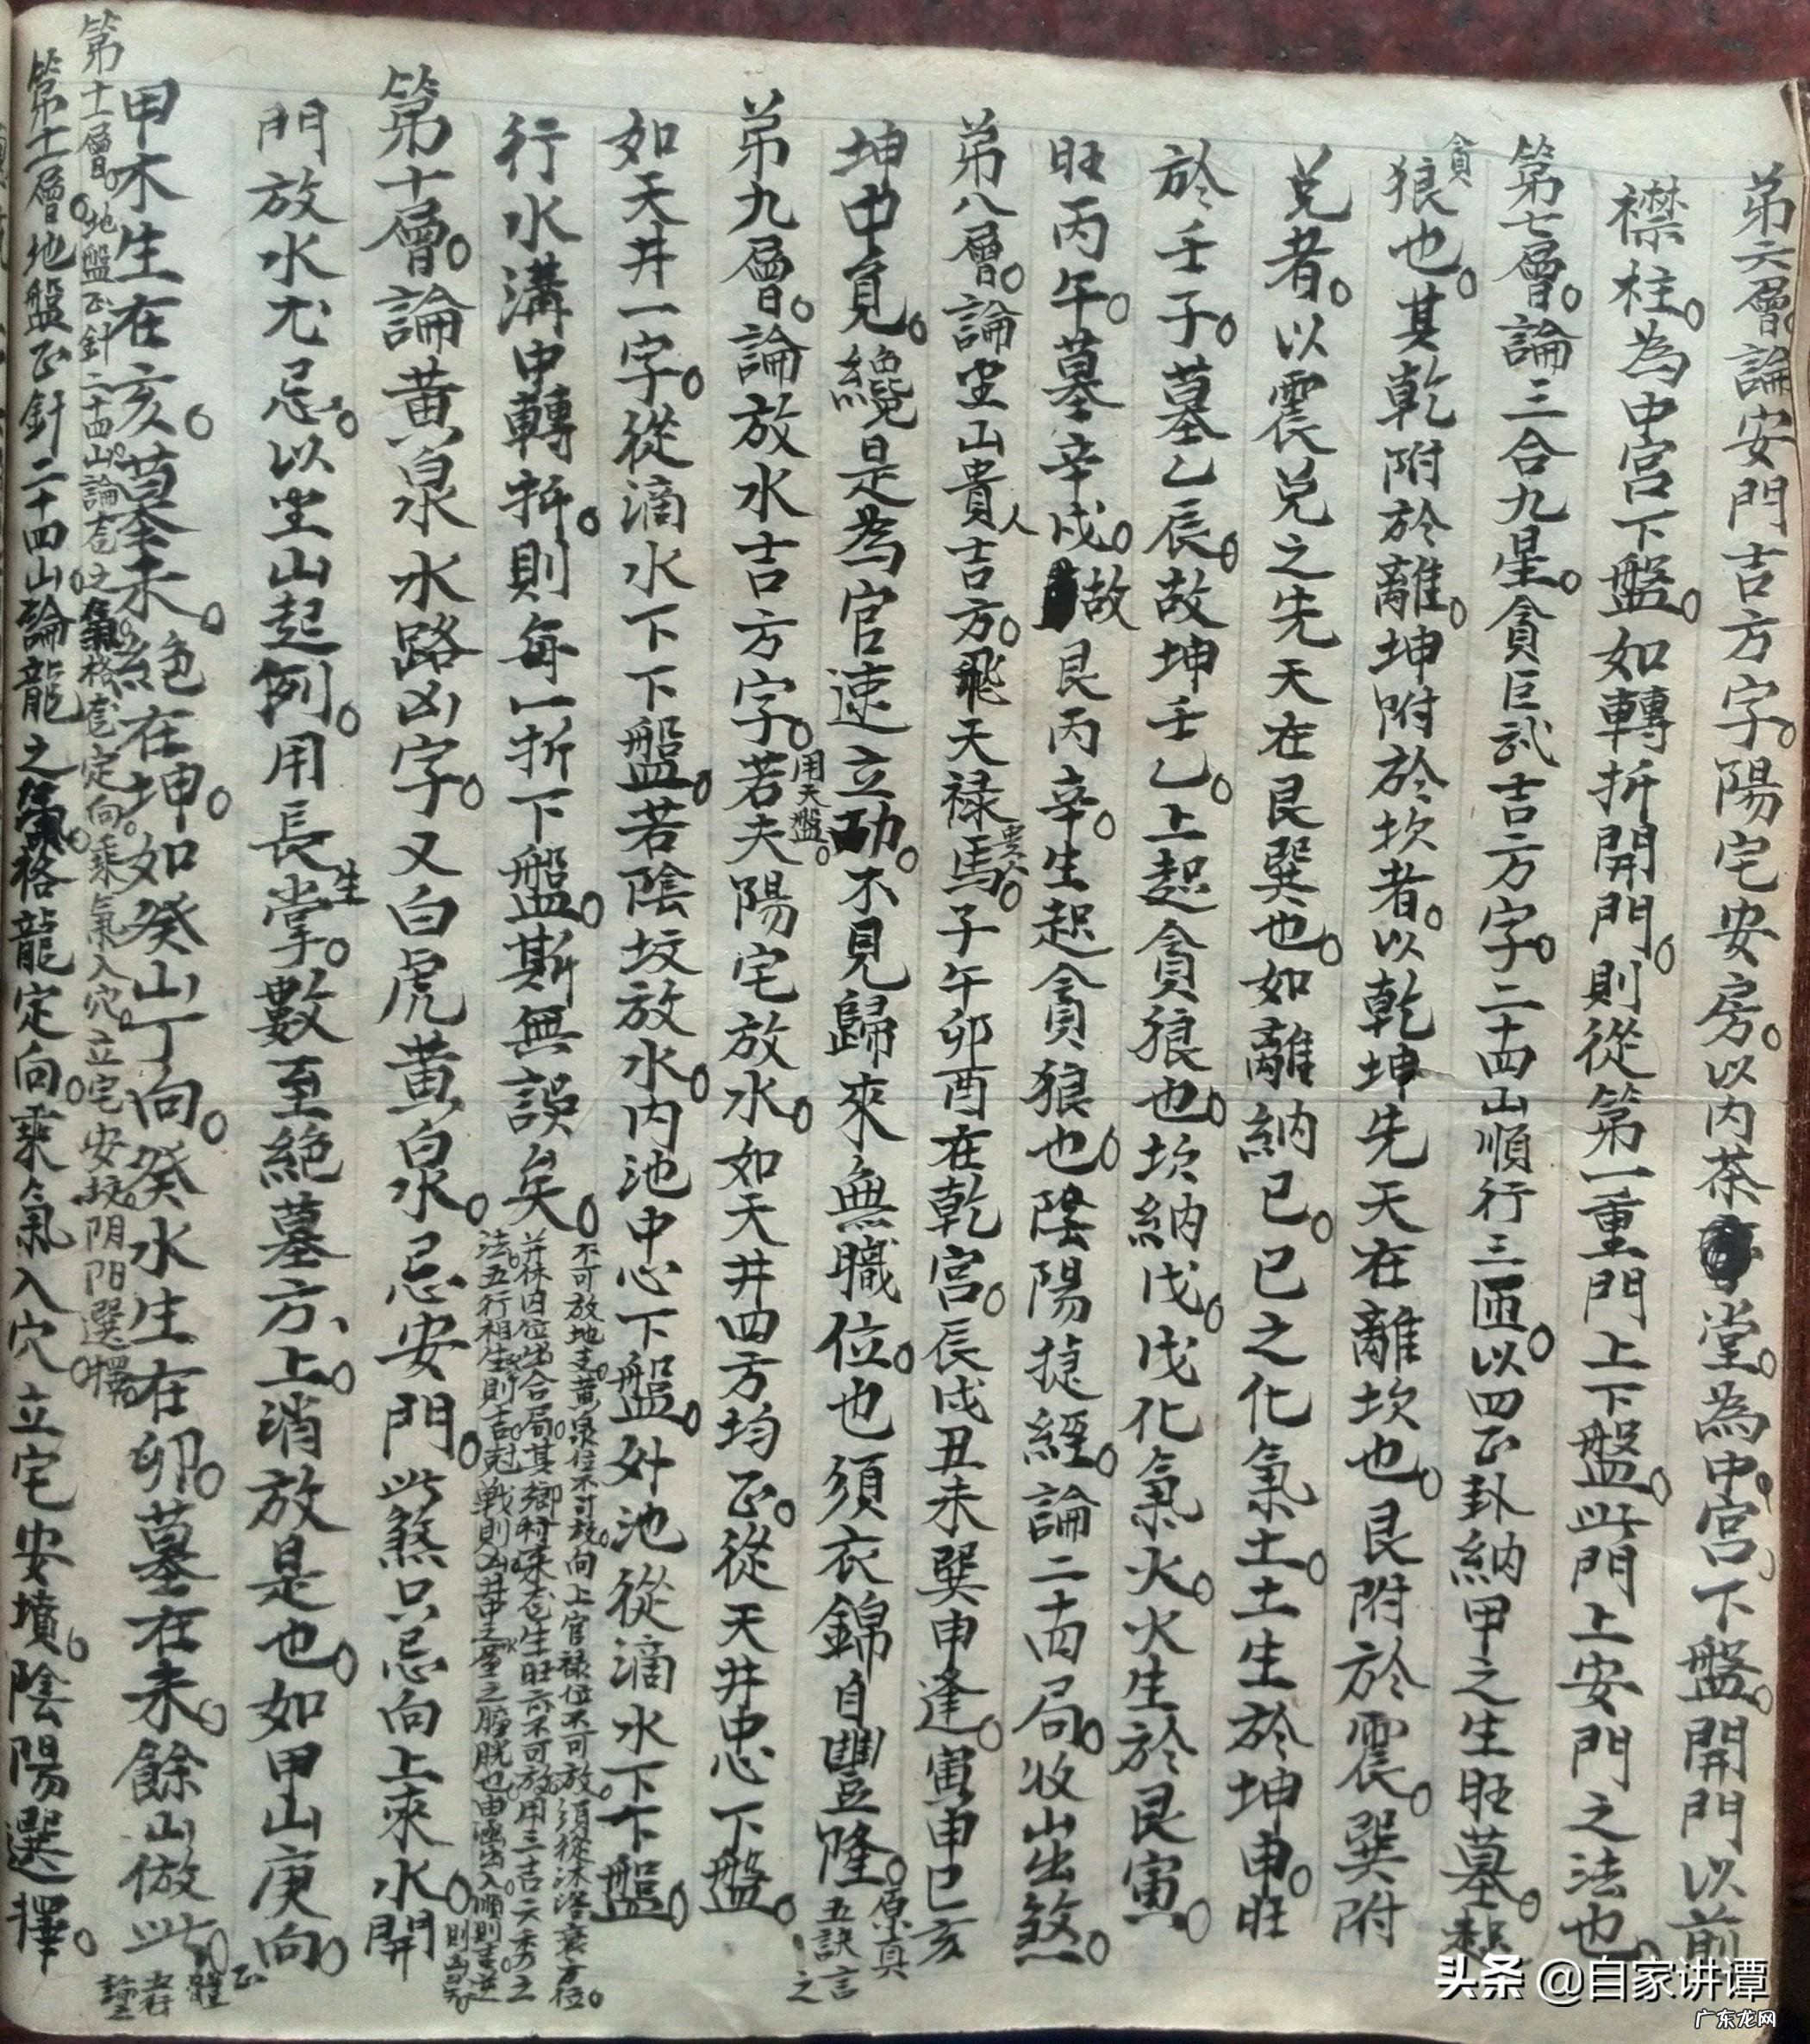 第六層。論安門吉方字。陽宅安房。以内茶堂。為中宮。下盤。開門以前
襟柱。為中宮下盤。如轉折開門。則從第一重門上下盤。此門上安門之法也。
第七層。論三合九星。貪巨武吉方字。二十四山順行三匝。以四正卦納甲之生旺墓。起
貪
狼也。其乾附於離。坤附於坎者。以乾坤先天在離坎也。艮附於震。巽附
兌者。以震兌之先天在艮巽也。如離納己。己之化氣土。土生於坤申。旺
於壬子。墓乙辰。故坤壬乙。上起貪狼也。坎納戊。戊化氣火。火生於艮寅。
旺丙午。墓辛戌。故艮丙辛。生起貪狼也。陰陽捷經。論二十四局。收山出煞。
第八層。論坐山貴人吉方。飛天禄馬貴人。子午卯酉在乾宮。辰戌丑未巽申逢。寅申巳亥
坤中覓。纔是為官速立功。不見歸來無職位。也須衣錦自豐隆。原真
五訣言之
第九層。論放水吉方字。用天盤。若夫陽宅放水。如天井四方均正。從天井中心下盤。
如天井一字。從滴水下下盤。若陰坟放水。内池中心下盤。外池從滴水下下盤。
行水溝中轉折。則每一折下盤。斯無誤矣。
不可放地支。黄泉位不可放。向上官禄位不可放。須從沐浴衰方位。
第十層。論黄泉水路凶字。又白虎黄泉。忌安門。此煞只忌向上來水。開
門放水尤忌。以坐山起例。用長生掌。數至絶墓方、上。消放是也。如甲山庚向。
甲木生在亥。墓未。絶在坤。如癸山丁向。癸水生在卯。墓在未。餘山倣此。
第十一層。地盤正針二十四山。論龍之氣。格龍定向。乘氣入穴。立宅安坟。阴阳選擇。
第十一層。地盤正針二十四山。論龍之氣。格龍定向。乘氣入穴。立宅安墳。陰陽選擇。
头条 @自家讲谭
广东龙网